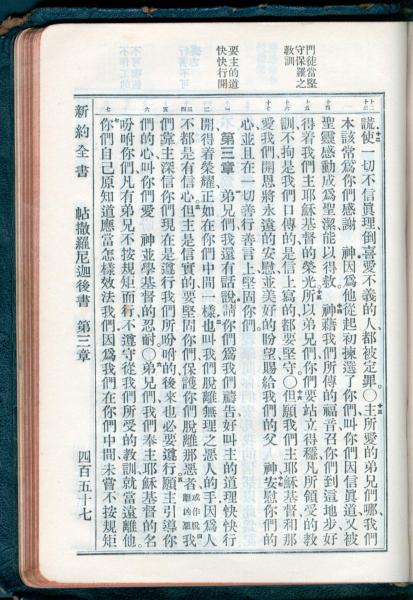 門徒當堅
守保羅之
教訓
要主的道
快快行開
謊使一切不信眞理倒喜愛不義的人都被定罪〇主所愛的弟兄們哪我們
本該常爲你們感謝　神因爲他從起初揀選了你們叫你們因信眞道又被
聖靈感動成爲聖潔能以得救　神藉我們所傳的福音召你們到這地步好
得着我們主耶穌基督的榮光所以弟兄們你們要站立得穩凡所領受的教
訓不拘是我們口傳的是信上寫的都要堅守〇但願我們主耶穌基督和那
愛我們開恩將永遠的安慰並美好的盼望賜給我們的父　神安慰你們的
心並且在一切善行善言上堅固你們。
第三章　弟兄們我還有話說請你們爲我們禱告好叫主的道理快快行
開得着榮耀正如在你們中間一樣也叫我們脫離無理之惡人的手因爲人
不都是有信心但主是信實的要堅固你們保護你們脫離那惡者或作脫離凶惡我
們靠主深信你們現在是遵行我們所吩咐的後來也必要遵行願主引導你
們的心叫你們愛　神並學基督的忍耐〇弟兄們我們奉主耶穌基督的名
吩咐你們凡有弟兄不按規矩而行不遵守從我們所受的教訓就當遠離他。
你們自己原知道應當怎樣效法我們因爲我們在你們中間未嘗不按規矩
新約全書　帖撒羅尼迦後書　第三章　四百五十七